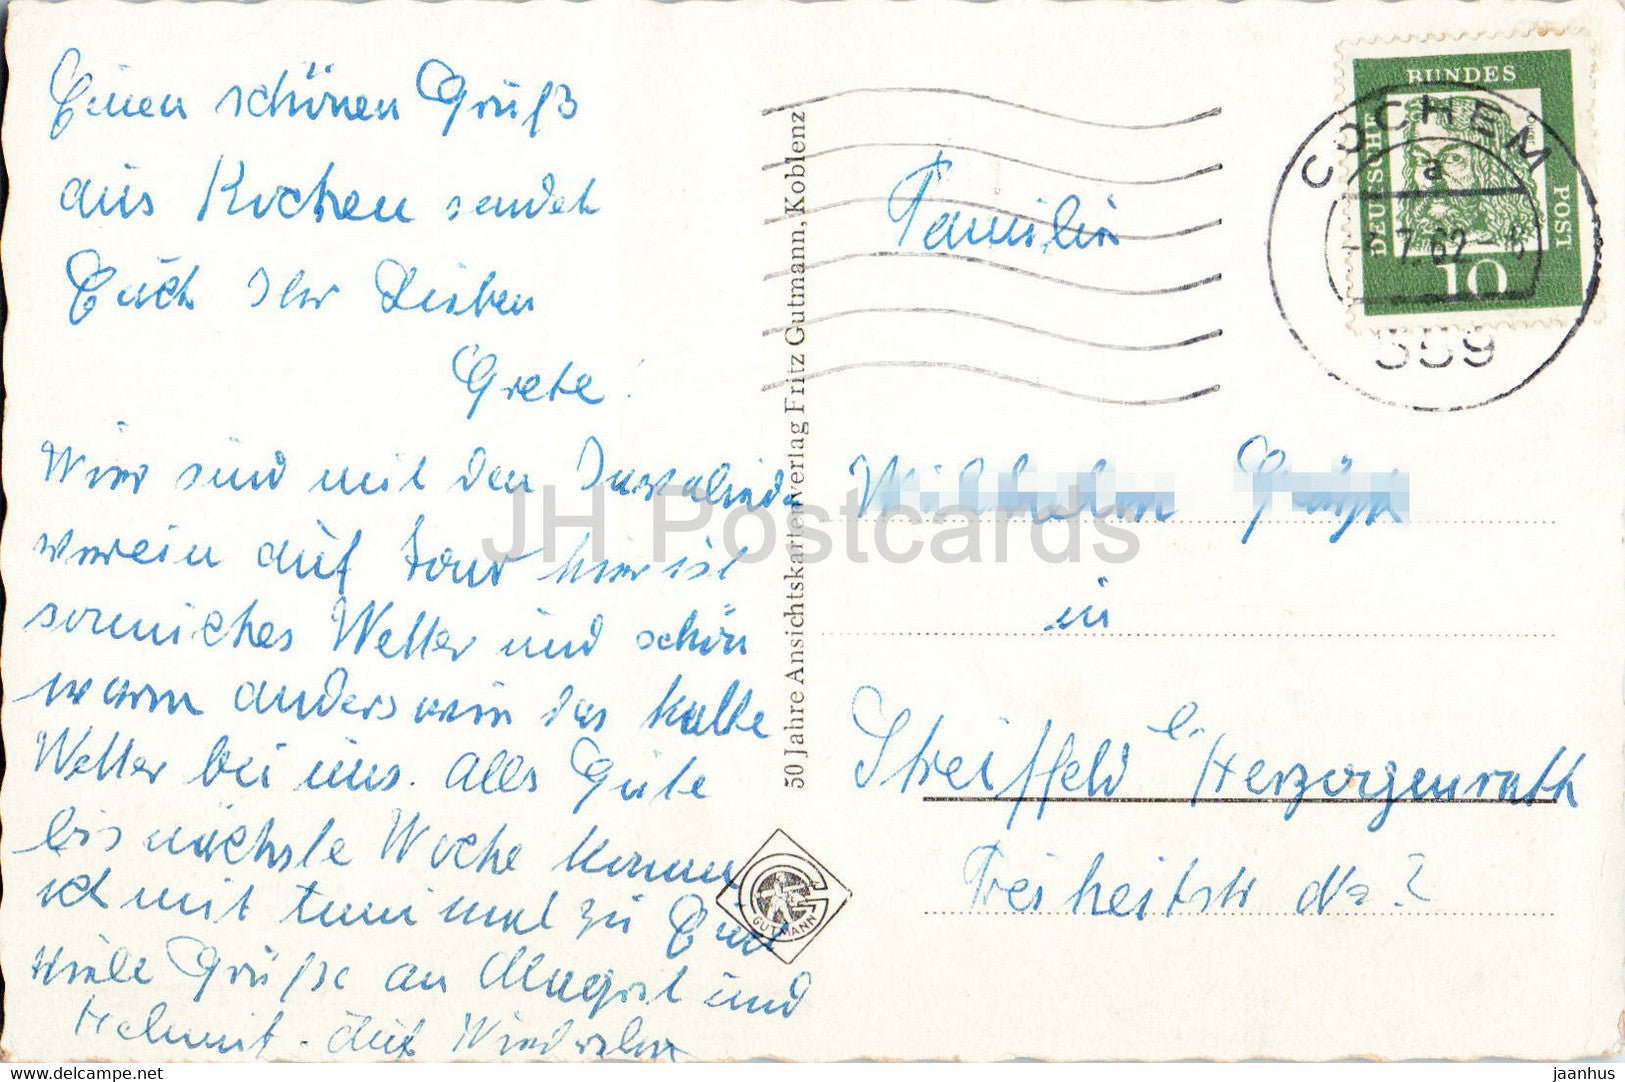 Einen schönen Gruß
aus Kochem sendet
Euch Ihr Lieben
Grete!
Wier sind mit den Invaliden
verein auf tour hier ist
sonniches Wetter und schön
warm anders wie das kalte
Wetter bei uns. Alls Gute
bis nächste Woche komme
ich mit zu Euch
viele Grüße an Margrit und
Helmut. Auf Wiedersehn
50 Jahre Ansichtskartenverlag Fritz Gutmann, Koblenz
GUTMANN
DEUTSCHE BUNDESPOST
10
COCHEM
a
7.62
559
Familie
Wilhelm
in
Streiffeld b. Herzogenrath
Freiheitstr No 2
JH Postcards
delcampe.net
jaanhus